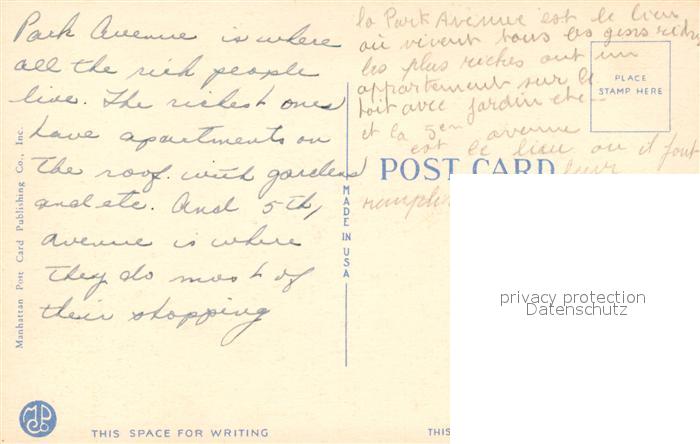 Park Avenue is where
all the rich people
live. The richest ones
have apartments on
the roof with gardens
and etc. And 5th,
avenue is where
they do most of
their shopping
la Park Avenue est le lieu
où vivent tous les gens riches
les plus riches ont un
appartement sur le
toit avec jardin etc
et la 5em avenue
est le lieu où il font
leur
PLACE
STAMP HERE
POST CARD
MADE IN USA
Manhattan Post Card Publishing Co., Inc.
MPCo
THIS SPACE FOR WRITING
THIS
privacy protection
Datenschutz